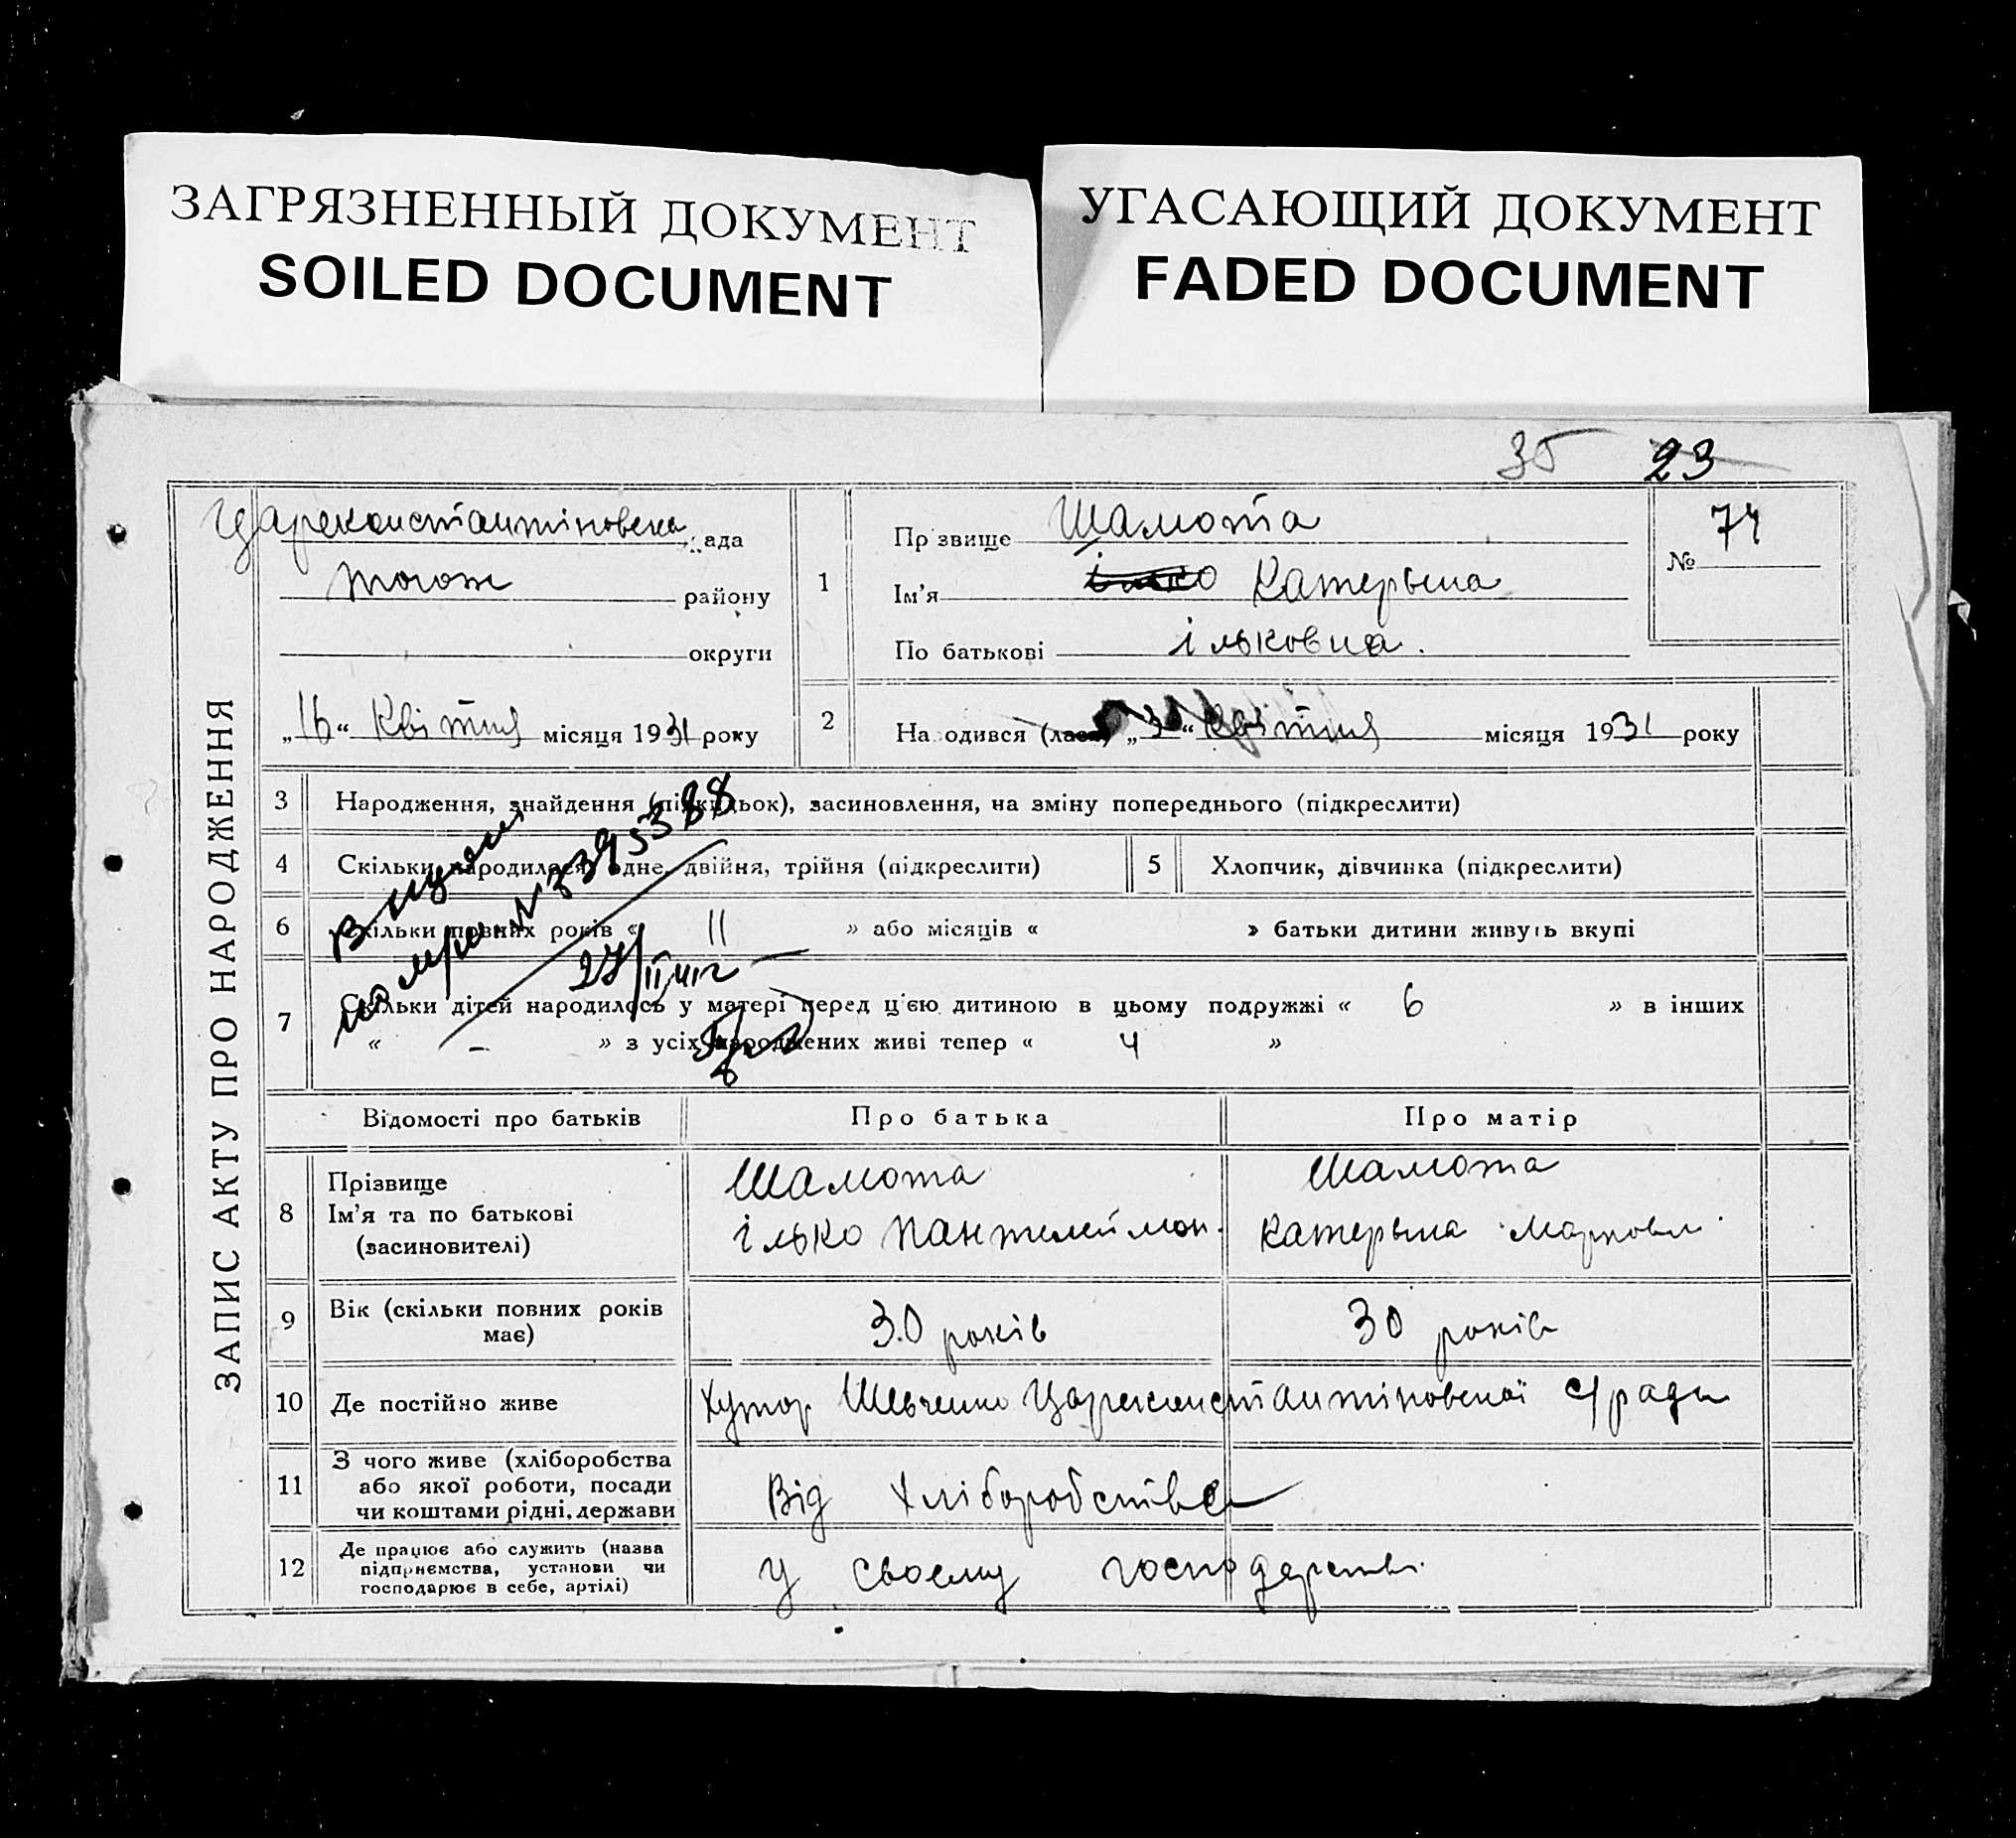 ЗАГРЯЗНЕННЫЙ ДОКУМЕНТ
SOILED DOCUMENT
УГАСАЮЩИЙ ДОКУМЕНТ
FADED DOCUMENT
35 23
ЗАПИС АКТУ ПРО НАРОДЖЕННЯ
Цареконстантіновська рада
тогож району
округи
„16“ Квітня місяця 1931 року
1
Прізвище Шамота
Ім'я ілько Катерына
По батькові ільковна.
№ 74
2 Народився (лася) „3“ Квітня місяця 1931 року
3 Народження, знайдення (підкидьок), засиновлення, на зміну попереднього (підкреслити)
4 Скільки народилося: одне, двійня, трійня (підкреслити)
5 Хлопчик, дівчинка (підкреслити)
6 Скільки повних років « 11 » або місяців « » батьки дитини живуть вкупі
7 Скільки дітей народилось у матері перед цією дитиною в цьому подружжі « 6 » в інших
« – » з усіх народжених живі тепер « 4 »
395388
27/II
Відомості про батьків Про батька Про матір
8 Прізвище
Ім'я та по батькові
(засиновителі)
Шамота
ілько Пантелеймон.
Шамота
Катерына
9 Вік (скільки повних років
має)
30 років 30 років
10 Де постійно живе Хутор Шевченко Цареконстантіновської с/ради
11 З чого живе (хліборобства
або якої роботи, посади
чи коштами рідні, держави
Від хліборобства
12 Де працює або служить (назва
підприємства, установи чи
господарює в себе, артілі)
у своєму господарстві.